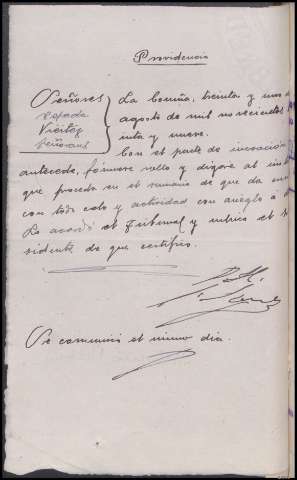 Providencia
Señores
Vieitez
La Coruña, treinta y uno de
agosto de mil novecientos
inta y nueve.
Con el parte de incoación
antecede, fórmese rollo y dígase al ins
que proceda en el sumario de que da cuen
con todo celo y actividad con arreglo a
Lo acordó el Tribunal y rubrica el
sidente de que certifico.
Se comunicó el mismo día.